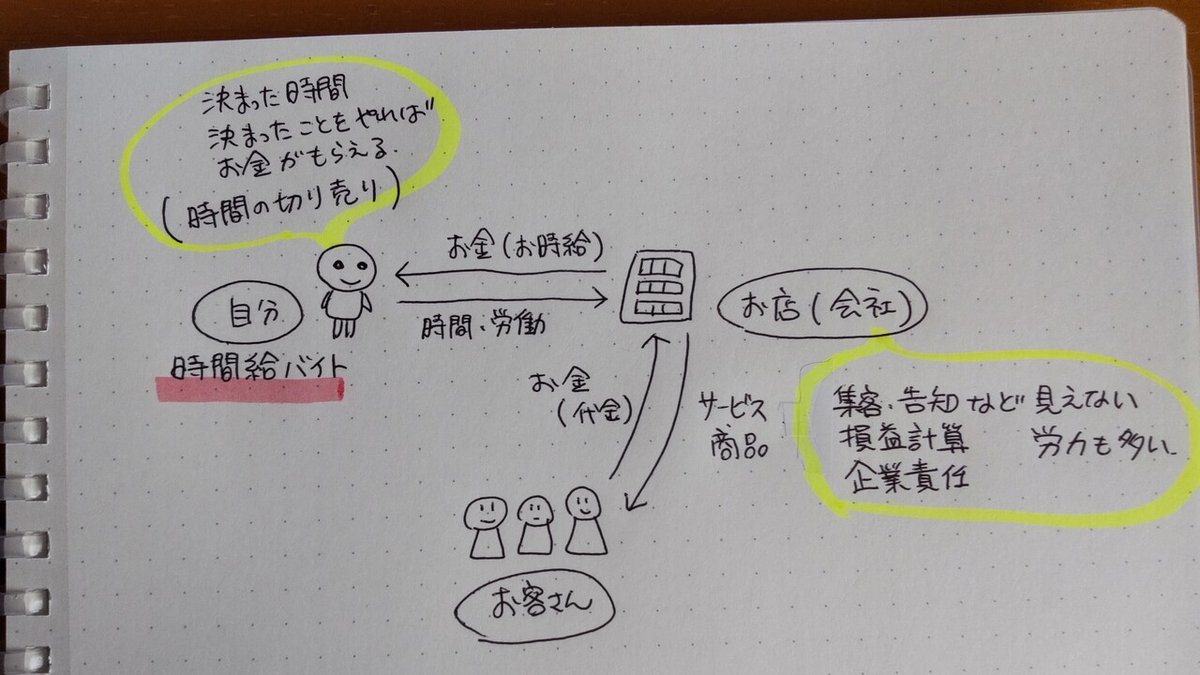 決まった時間
決まったことをやれば
お金がもらえる.
(時間の切り売り)
お金(お時給)
自分
時間・労働
お店(会社)
時間給バイト
お金
(代金)
サービス
商品
集客・告知など見えない
損益計算 労力も多い.
企業責任
お客さん